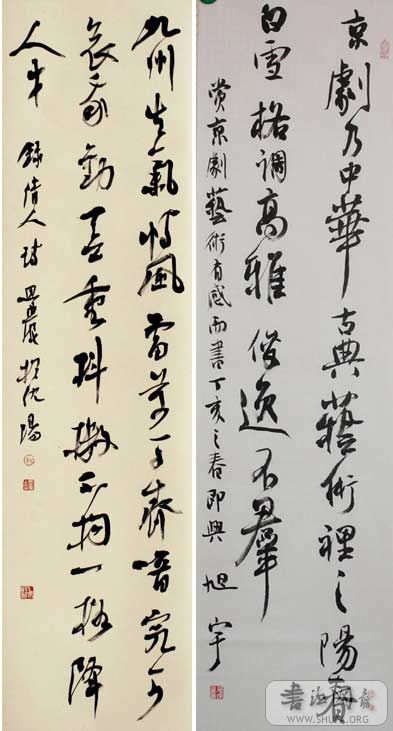 京劇乃中華古典藝術裡之陽春
白雪格調高雅俊逸不羣
賞京劇藝術有感而書丁亥之春即興旭宇
九州生氣恃風雷萬馬齊喑究可
哀我勸天公重抖擻不拘一格降
人才 錄清人詩 於沈陽
WWW.SHUFA.ORG